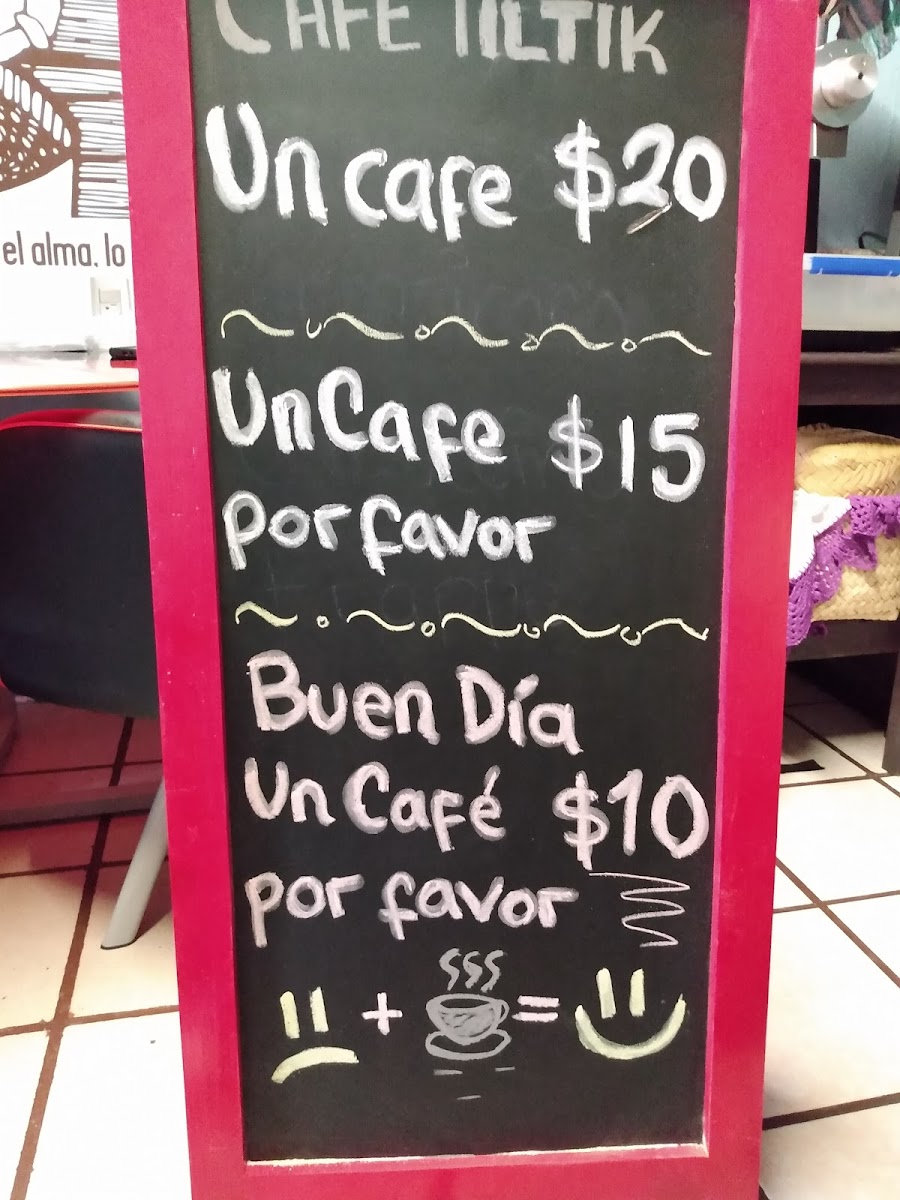 CAFE TILTIK
Un cafe $20
el alma, lo
Un Cafe $15
por favor
Buen Día
Un Café $10
por favor
+ =